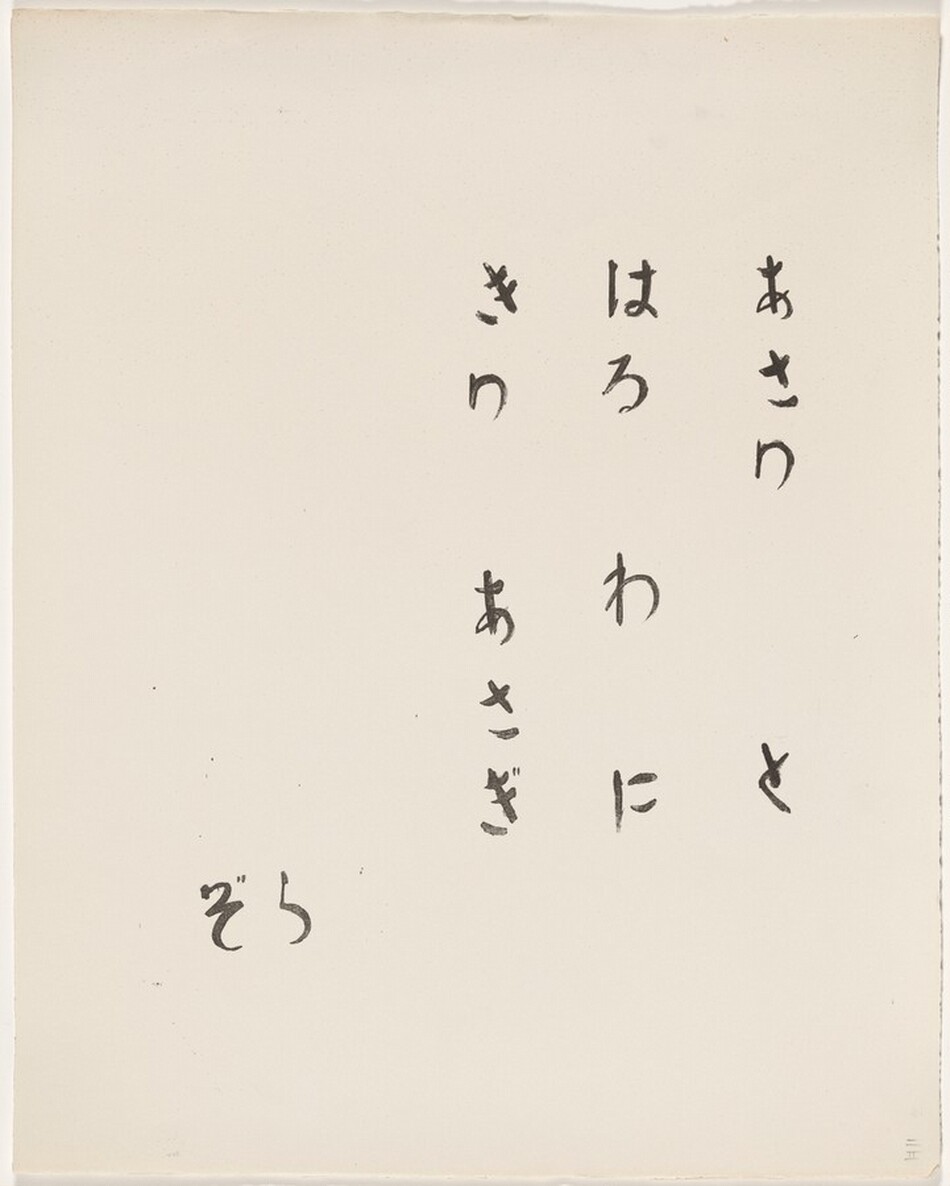 あさり と
はる わ に
きり あさぎ
ぞら